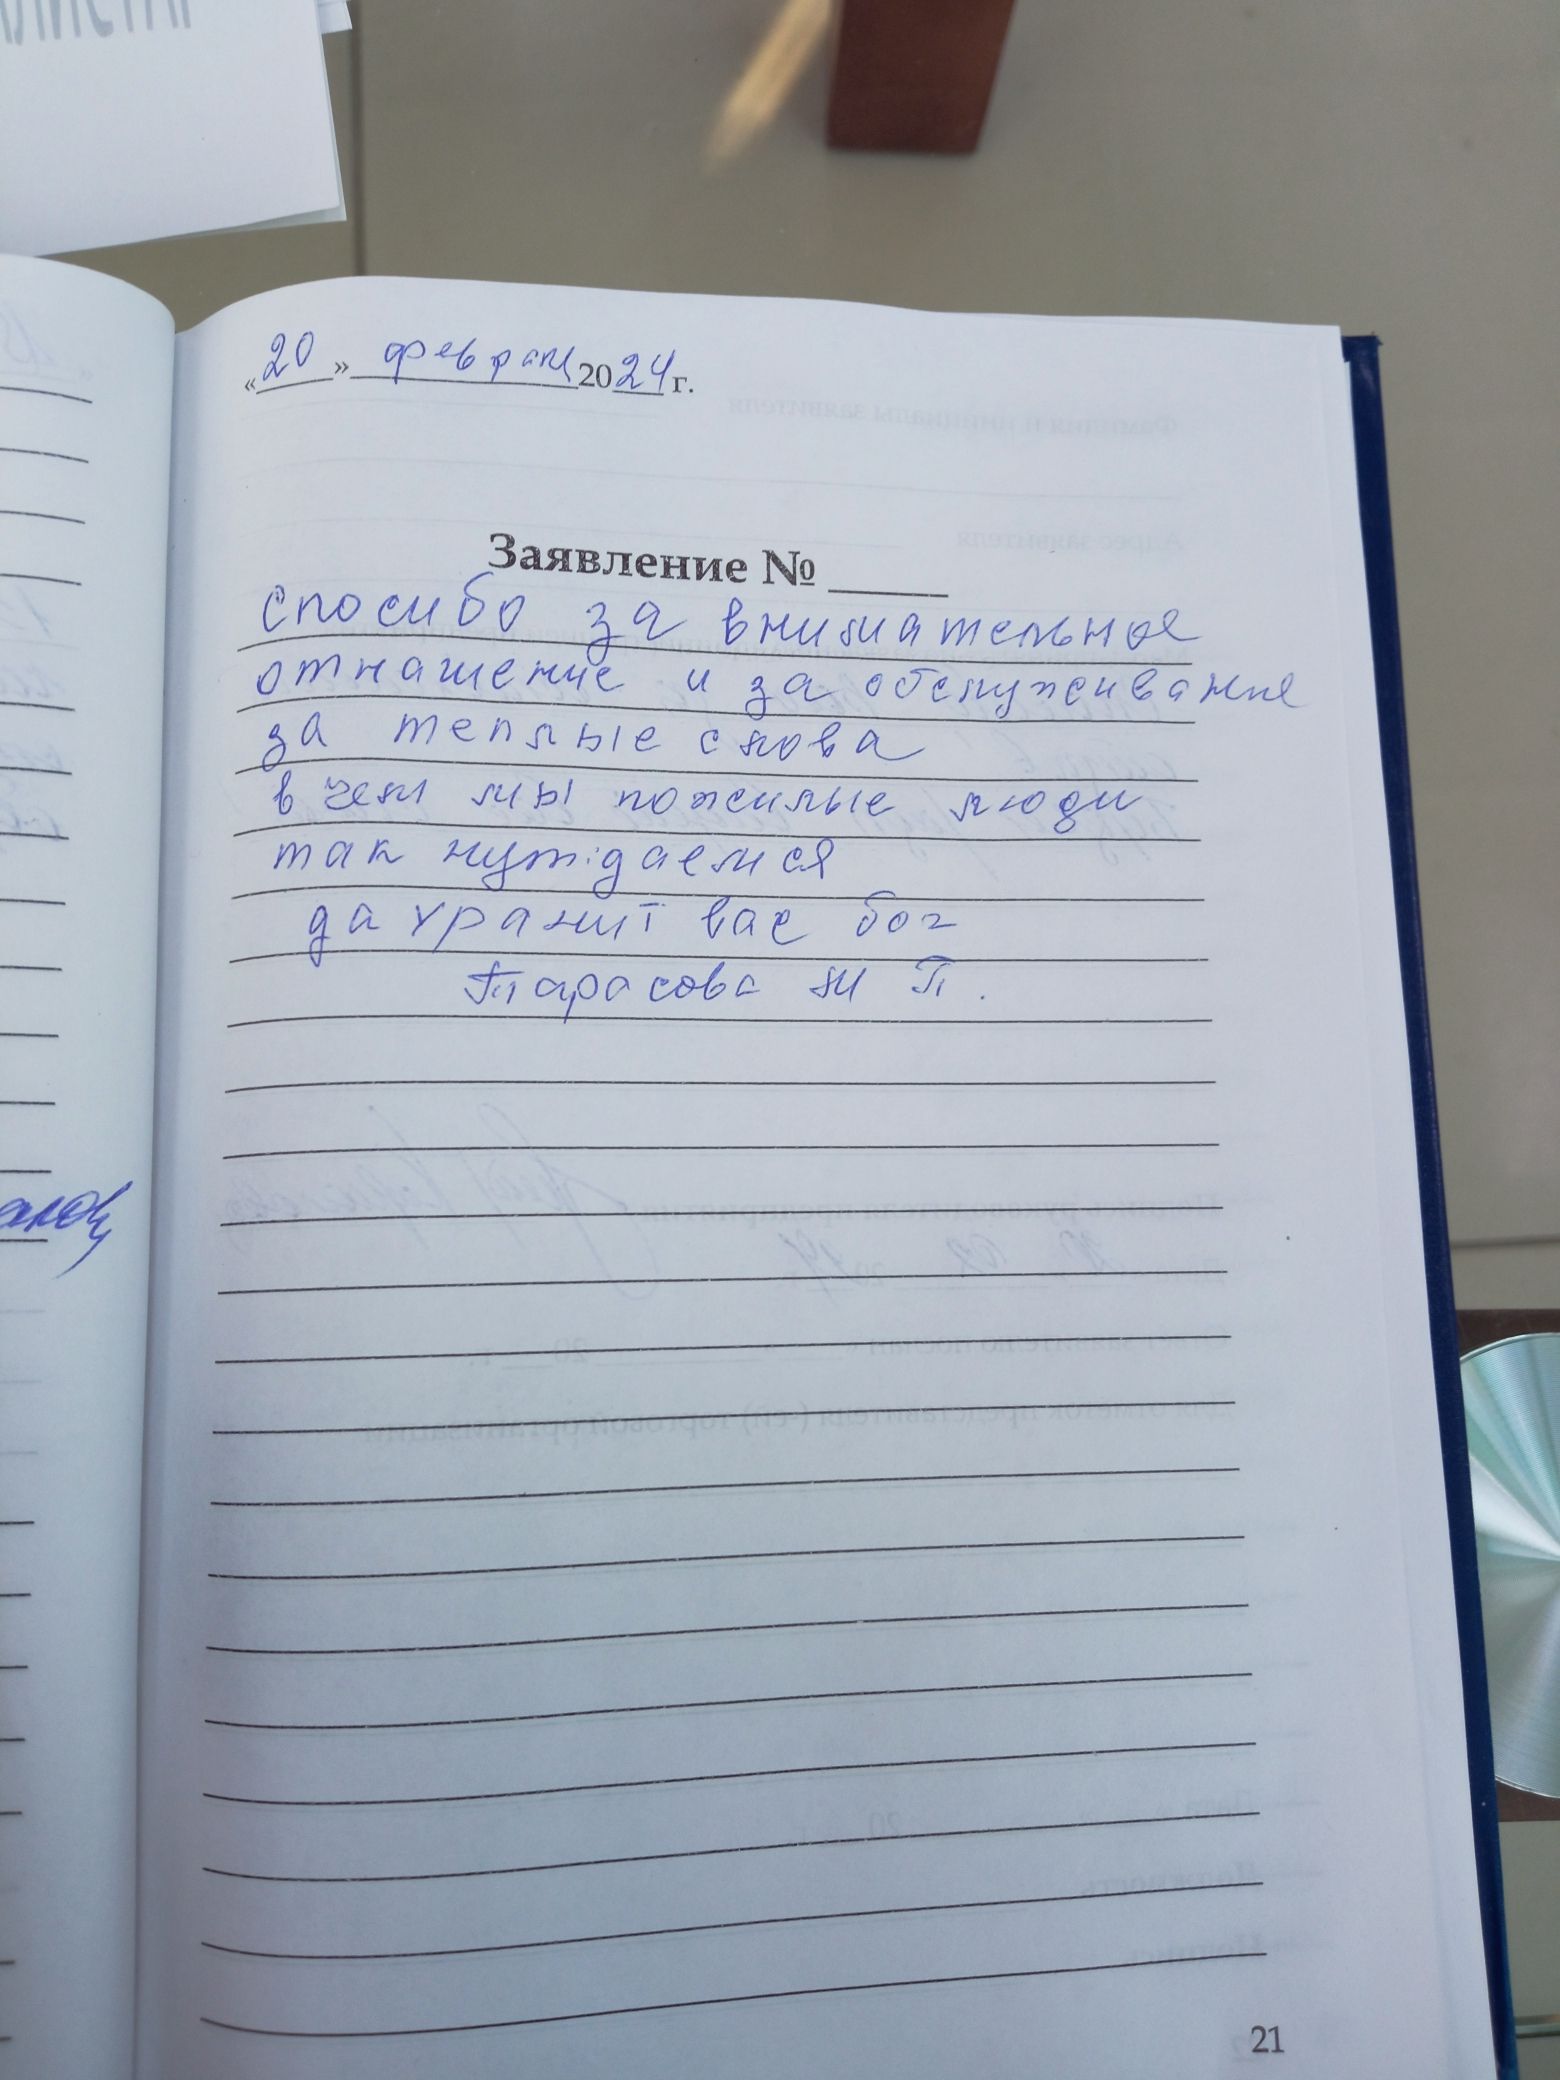 «20» феврал 2024 г.
Заявление №
спосибо за внимательное
отнашение и за обслуживание
за теплые слова
в чем мы пожилые люди
так нуждаемся
да хранит вас бог
Тарасова М П.
21